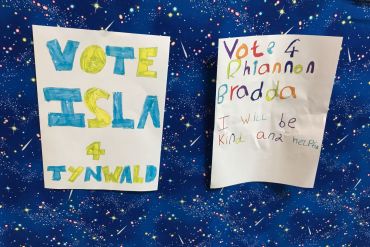 VOTE
ISLA
4
TYNWALD
Vote 4
Rhiannon
Bradda
I will be
Kind and helpful